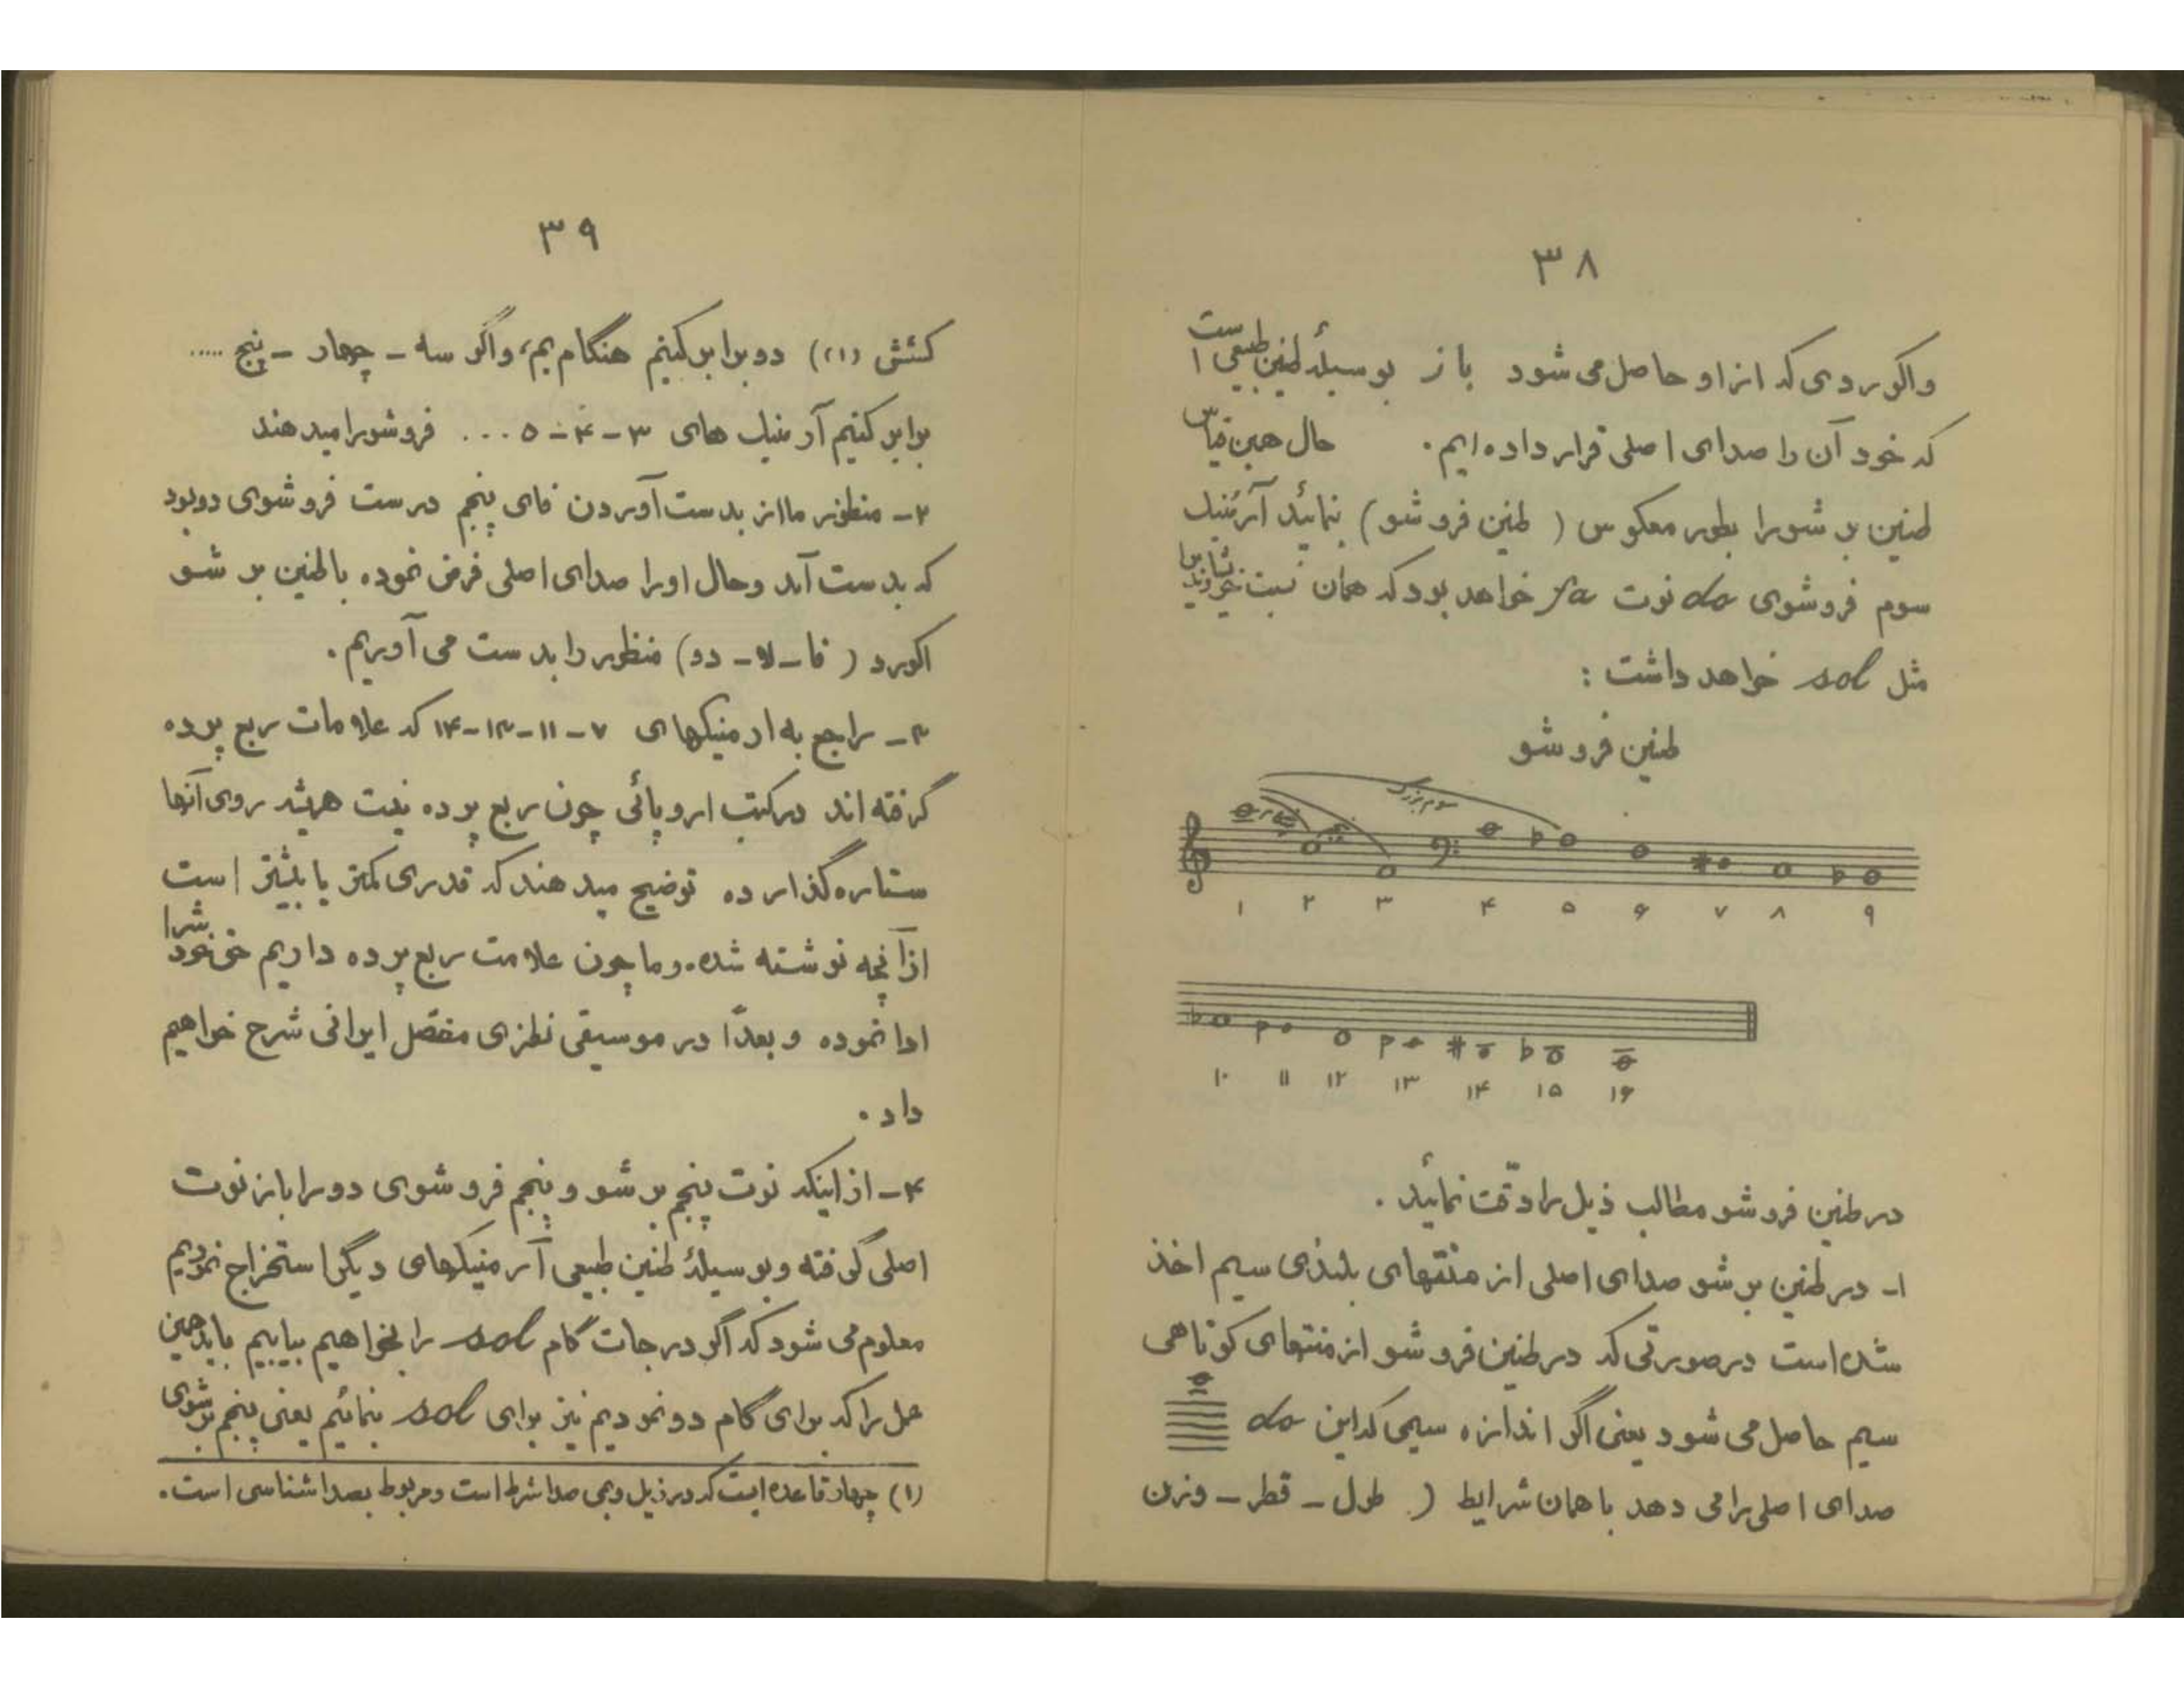 ۳۸
واکوردی که از او حاصل می شود باز بوسیلهٔ طنین طبیعی است
که خود آن را صدای اصلی قرار داده ایم. حال همین قیاس
طنین بر شورا بطور معکوس ( طنین فرو شو ) بنمائید آرمنیک
سوم فروشوی do نوت fa خواهد بود که همان نسبت
مثل sol خواهد داشت :
طنین فرو شو
سوم بزرگ
۱ ۲ ۳ ۴ ۵ ۶ ۷ ۸ ۹
۱۰ ۱۱ ۱۲ ۱۳ ۱۴ ۱۵ ۱۶
در طنین فرو شو مطالب ذیل را دقّت نمائید .
۱- در طنین بر شو صدای اصلی از منتهای بلندی سیم اخذ
شده است در صورتی که در طنین فرو شو از منتهای کوتاهی
سیم حاصل می شود یعنی اگر اندازه سیمی که این do
صدای اصلی را می دهد با همان شرایط ( طول - قطر - وزن
۳۹
کشش (۱)) دو برابر کنیم هنگام بم، و اگر سه - چهار - پنج .....
برابر کنیم آرمنیک های ۳-۴-۵... فرو شو را میدهند
۲- منظور ما از بدست آوردن فای پنجم درست فرو شوی دو بود
که بدست آید و حال او را صدای اصلی فرض نموده با طنین بر شو
اکورد ( فا - لا - دو) منظور را بدست می آوریم .
۳- راجع به ارمنیکهای ۷-۱۱-۱۳-۱۴ که علامات ربع پرده
گرفته اند در کتب اروپائی چون ربع پرده نیست همیشه روی آنها
ستاره گذارده توضیح میدهند که قدری کمتر یا بیشتر است
از آنچه نوشته شده. و ما چون علامت ربع پرده داریم حق خودش را
ادا نموده و بعداً در موسیقی نظری مفصّل ایرانی شرح خواهیم
داد .
۴- از اینکه نوت پنجم بر شو و پنجم فرو شوی دو را باز نوت
اصلی گرفته و بوسیلهٔ طنین طبیعی آرمنیکهای دیگر استخراج نمودیم
معلوم می شود که اگر درجات گام sol را بخواهیم بیابیم باید همین
عمل را که برای گام دو نمودیم نیز برای sol بنمائیم یعنی پنجم بر شوی
(۱) چهار قاعده ایست که در زیل و بمی صدا شرط است و مربوط بصدا شناسی است.